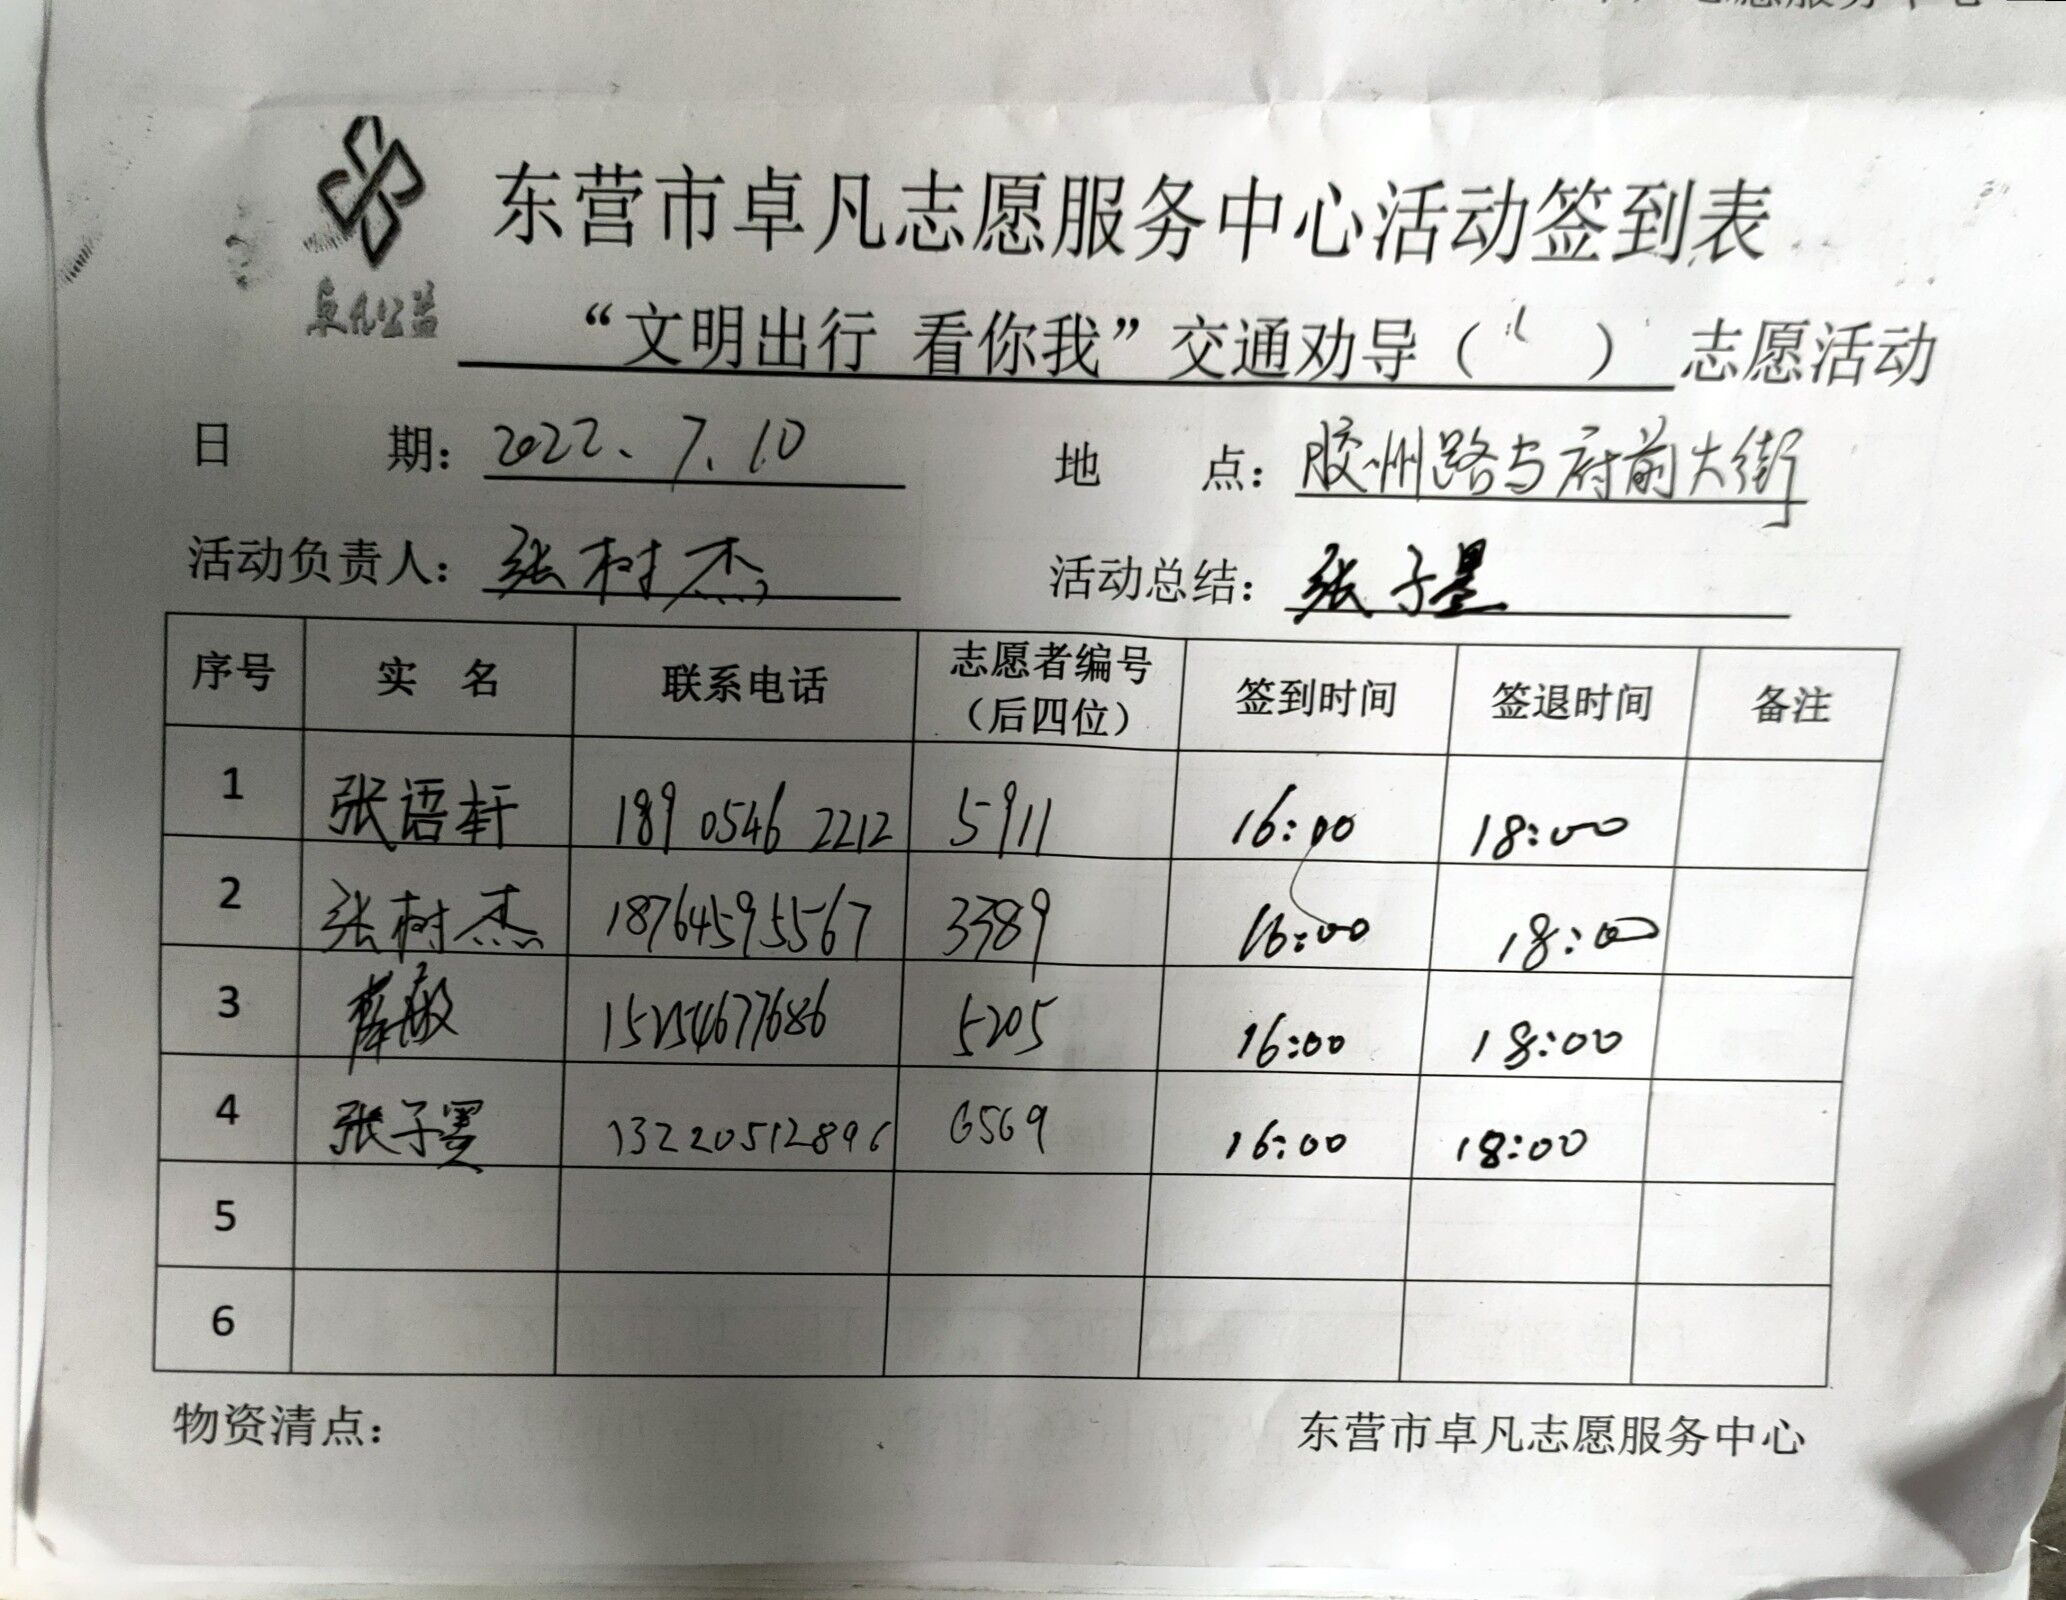 卓凡公益
东营市卓凡志愿服务中心活动签到表
“文明出行 看你我”交通劝导（ ）志愿活动
日 期：2022、7、10 地 点：胶州路与府前大街
活动负责人：张树杰 活动总结：张子墨
序号 实 名 联系电话 志愿者编号（后四位） 签到时间 签退时间 备注
1 张语轩 189 0546 2212 5911 16:00 18:00
2 张树杰 18764595567 3389 16:00 18:00
3 薛敏 15254677686 5205 16:00 18:00
4 张子墨 13220512896 6569 16:00 18:00
5
6
物资清点： 东营市卓凡志愿服务中心